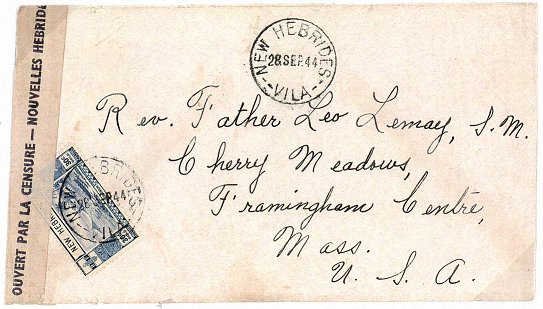 OUVERT PAR LA CENSURE — NOUVELLES HEBRIDE
NEW HEBRIDES
28 SEP. 44
VILA
Rev. Father Leo Lemay, S.M.
Cherry Meadows,
Framingham Centre,
Mass.
U. S. A.
NEW HEBRIDES
28 SEP 44
NEW HEBR